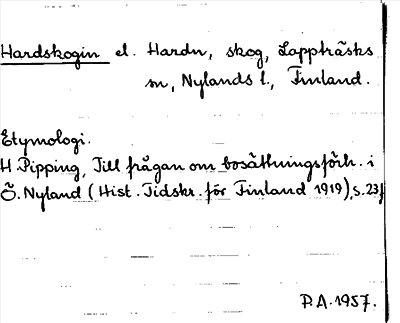 Hardskogin el. Hardn, skog, Lappträsks
sn, Nylands l., Finland.
Etymologi.
H Pipping, Till frågan om bosättningsförh. i
Ö. Nyland (Hist. Tidskr. för Finland 1919), s. 23f
P.A. 1957.